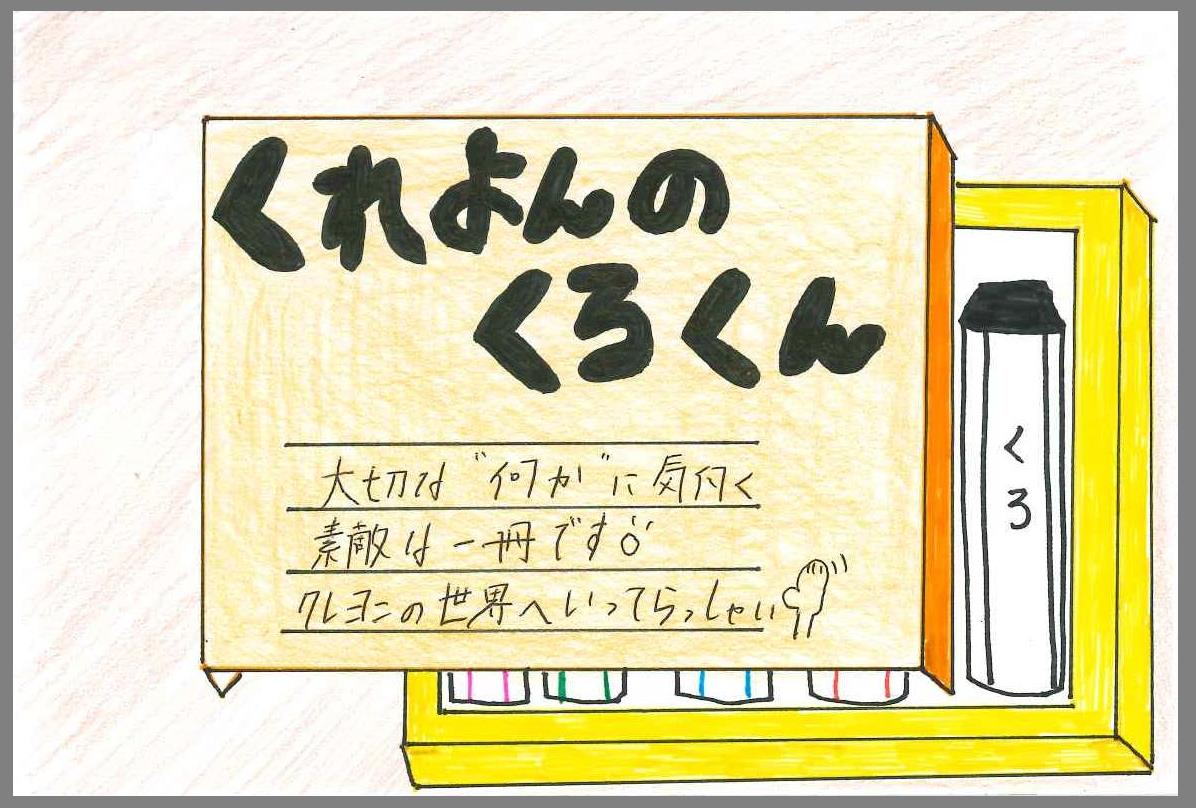 くれよんの
くろくん
大切な"何か"に気付く
素敵な一冊です
クレヨンの世界へいってらっしゃい
くろ